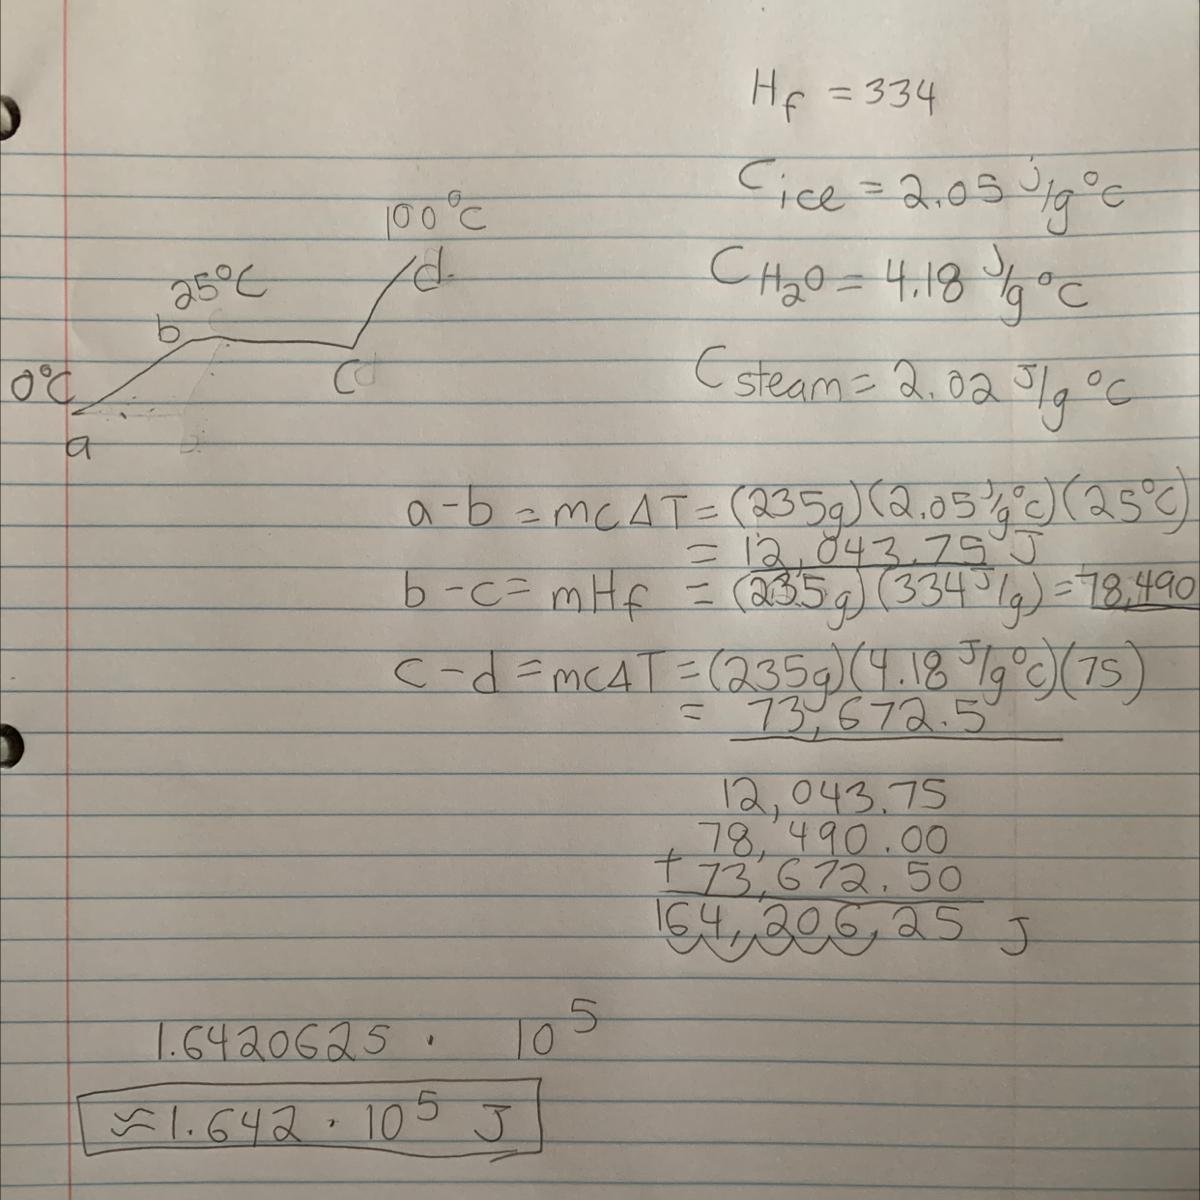 H_f = 334
C_ice = 2.05 J/g°C
100°C
d.
C_H₂O = 4.18 J/g°C
25°C
b
0°C
C
C_steam = 2.02 J/g °C
a
a-b = mcΔT = (235g)(2.05 J/g°C)(25°C)
= 12,043.75 J
b-c = mHf = (235g)(334 J/g) = 78,490
c-d = mcΔT = (235g)(4.18 J/g°C)(75)
= 73,672.5
12,043.75
78,490.00
+ 73,672.50
164,206,25 J
1.6420625 · 10⁵
≈1.642 · 10⁵ J